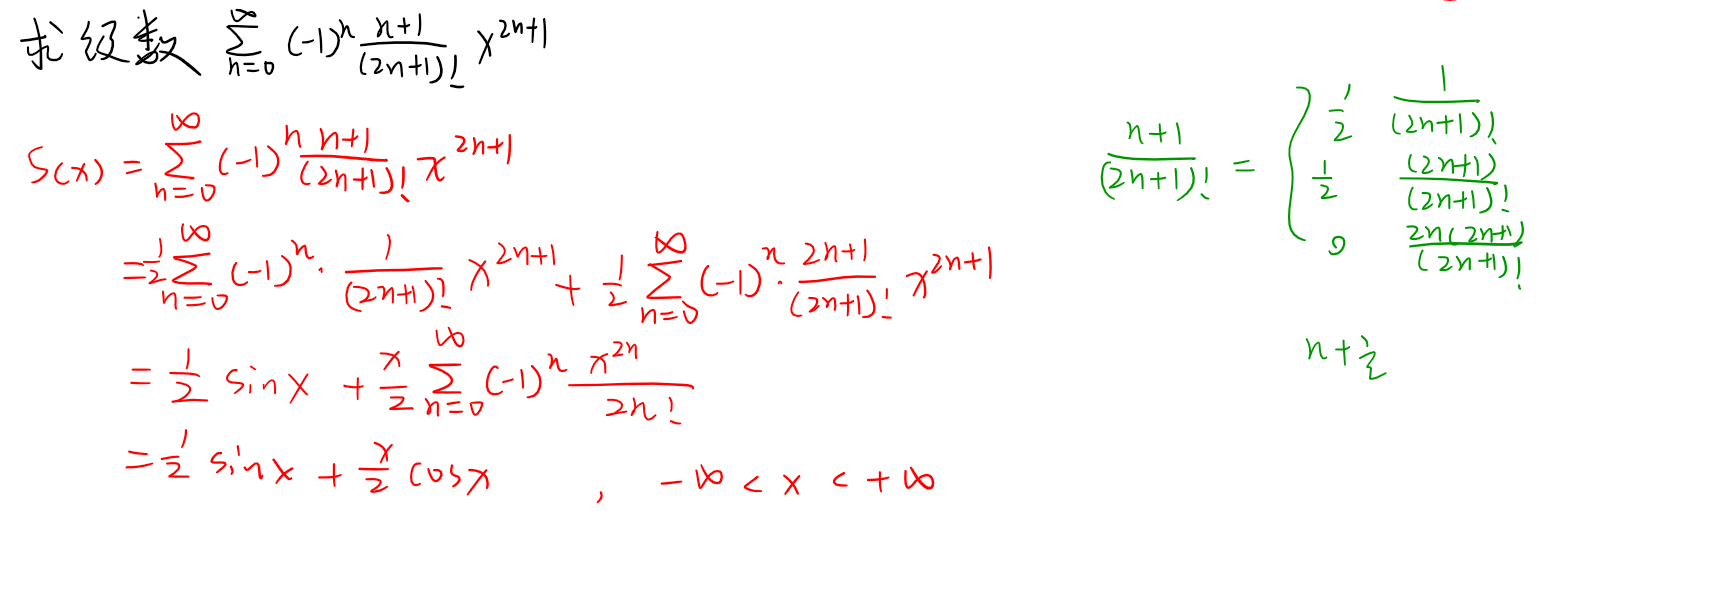 求级数 $\sum_{n=0}^{\infty} (-1)^n \frac{n+1}{(2n+1)!} x^{2n+1}$
$S(x) = \sum_{n=0}^{\infty} (-1)^n \frac{n+1}{(2n+1)!} x^{2n+1}$
$= \frac{1}{2} \sum_{n=0}^{\infty} (-1)^n \cdot \frac{1}{(2n+1)!} x^{2n+1} + \frac{1}{2} \sum_{n=0}^{\infty} (-1)^n \cdot \frac{2n+1}{(2n+1)!} x^{2n+1}$
$= \frac{1}{2} \sin x + \frac{x}{2} \sum_{n=0}^{\infty} (-1)^n \frac{x^{2n}}{2n!}$
$= \frac{1}{2} \sin x + \frac{x}{2} \cos x \quad , \quad -\infty < x < +\infty$
$\frac{n+1}{(2n+1)!} = \begin{cases} \frac{1}{2} & \frac{1}{(2n+1)!} \\ \frac{1}{2} & \frac{(2n+1)}{(2n+1)!} \\ 0 & \frac{2n(2n+1)}{(2n+1)!} \end{cases}$
$n + \frac{1}{2}$